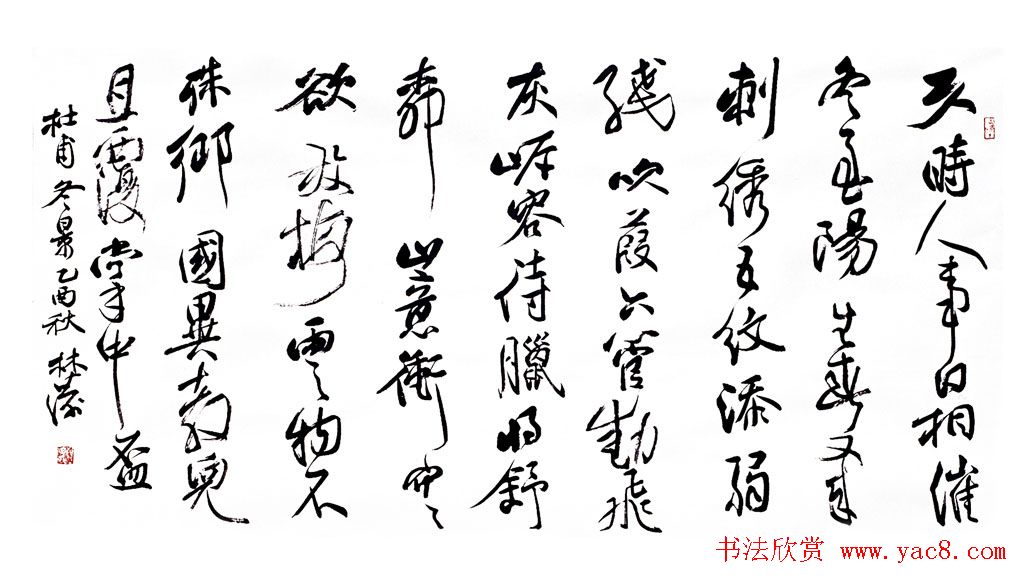 天時人事日相催
冬至陽生春又来
刺綉五纹添弱
綫吹葭六管動飛
灰岸容待臘将舒
柳山意衝寒
欲放梅雲物不
殊鄉國異教兒
且覆掌中盃
杜甫冬景乙酉秋 林
书法欣赏 www.yac8.com